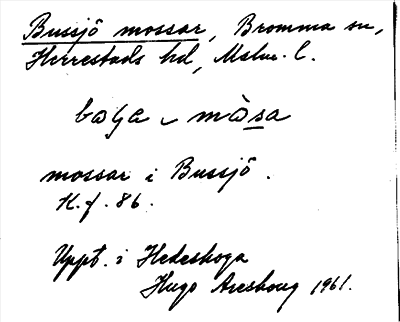 Bussjö mossar, Bromma sn,
Herrestads hd, Malm. l.
mòsa
mossar i Bussjö.
K. f. 86.
Uppt. i Hedeskoga
Hugo Areskoug 1961.